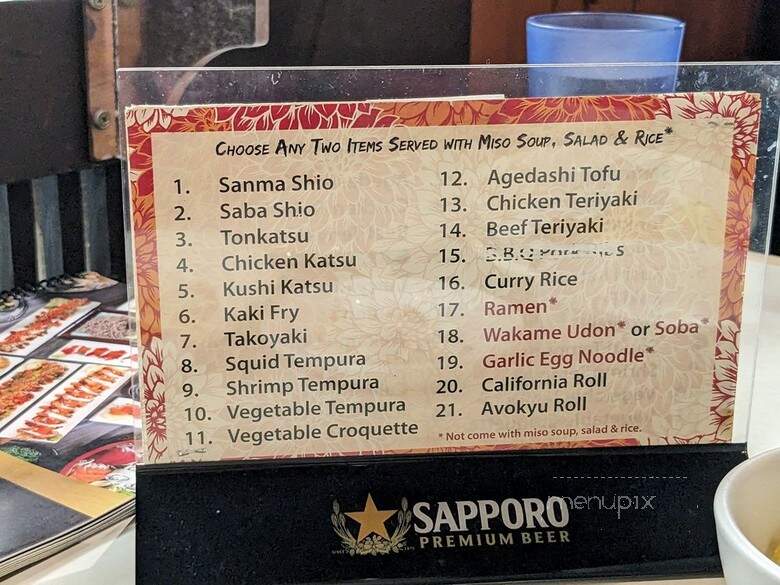 CHOOSE ANY TWO ITEMS SERVED WITH MISO SOUP, SALAD & RICE*
1. Sanma Shio
2. Saba Shio
3. Tonkatsu
4. Chicken Katsu
5. Kushi Katsu
6. Kaki Fry
7. Takoyaki
8. Squid Tempura
9. Shrimp Tempura
10. Vegetable Tempura
11. Vegetable Croquette
12. Agedashi Tofu
13. Chicken Teriyaki
14. Beef Teriyaki
15. B.B.Q
16. Curry Rice
17. Ramen*
18. Wakame Udon* or Soba*
19. Garlic Egg Noodle*
20. California Roll
21. Avokyu Roll
* Not come with miso soup, salad & rice.
SAPPORO
PREMIUM BEER
menupix